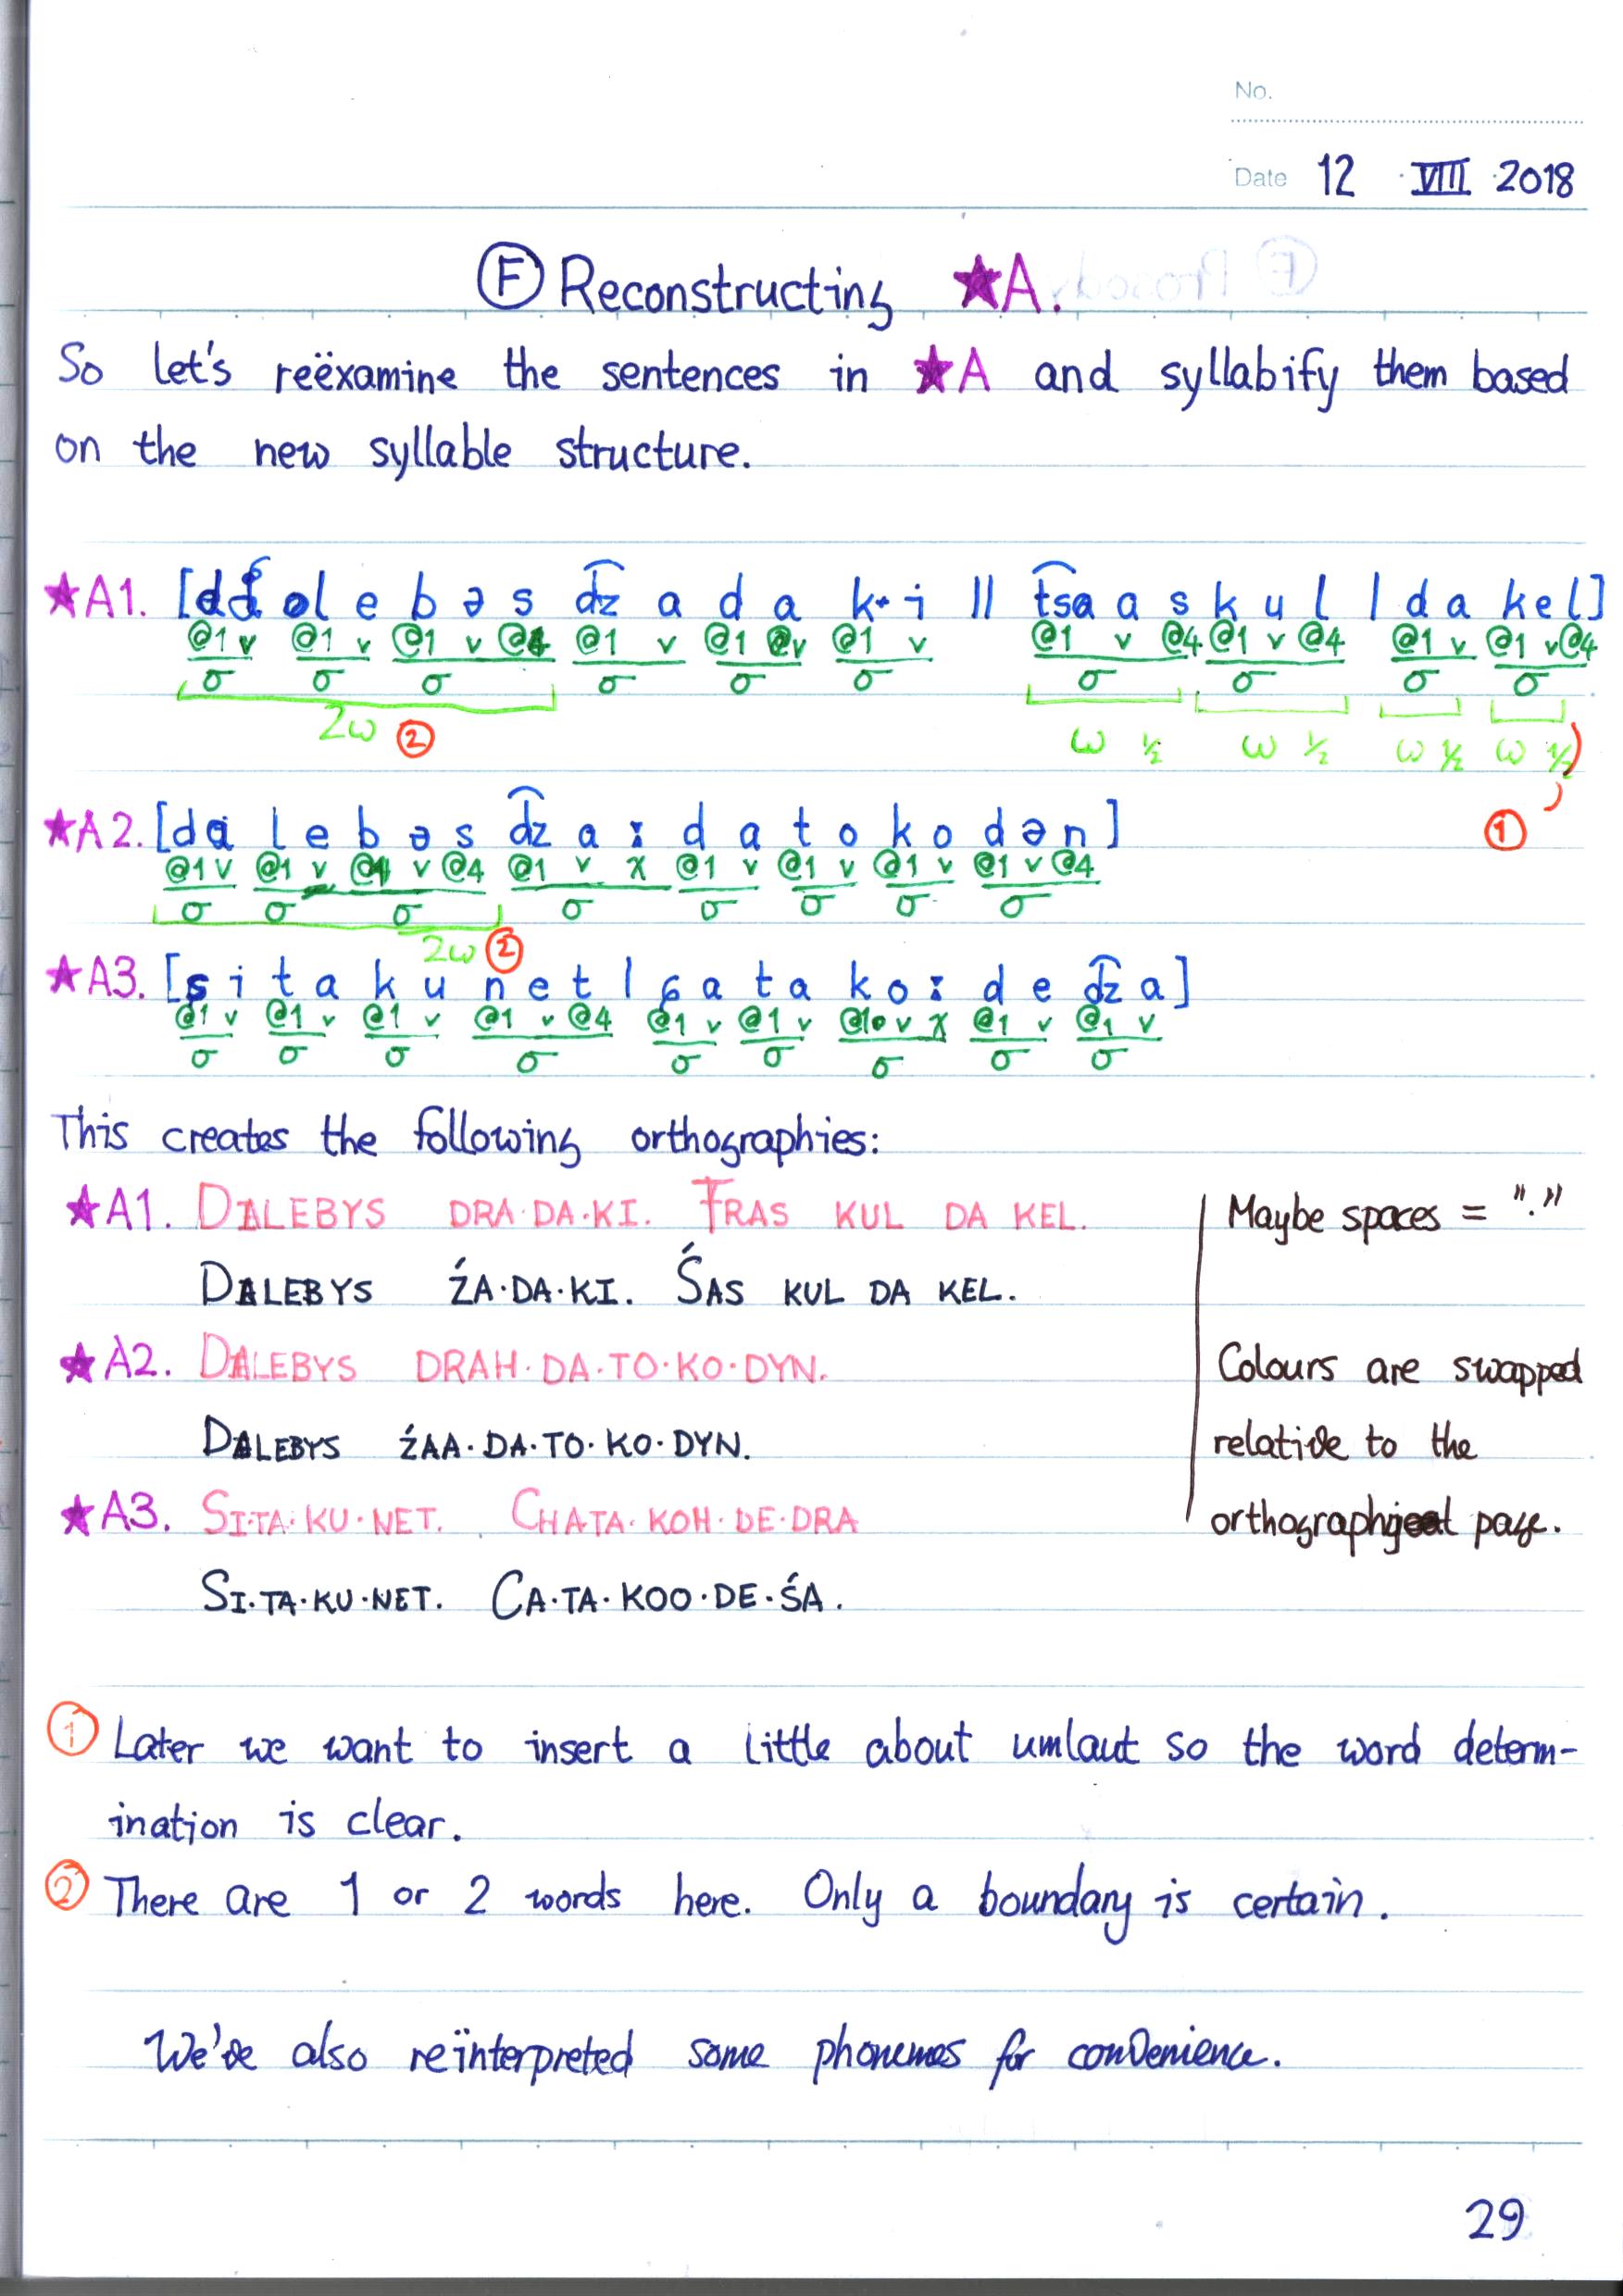 No.
Date 12 · VIII · 2018
Ⓕ Reconstructing ★A.
So let's reëxamine the sentences in ★A and syllabify them based
on the new syllable structure.
★A1. [d a l e b ə s d͡z a d a k i || t͡s a s k u l | d a k e l]
@1 v @1 v @1 v @4 @1 v @1 v @1 v @1 v @4 @1 v @4 @1 v @1 v @4
σ σ σ σ σ σ σ σ σ σ
2ω ② ω ½ ω ½ ω ½ ω ½
①
★A2. [d a l e b ə s d͡z a ː d a t o k o d ə n]
@1 v @1 v @1 v @4 @1 v x @1 v @1 v @1 v @1 v @4
σ σ σ σ σ σ σ σ
2ω ②
★A3. [ʂ i t a k u n e t | ɕ a t a k o ː d e d͡z a]
@1 v @1 v @1 v @1 v @4 @1 v @1 v @1 v x @1 v @1 v
σ σ σ σ σ σ σ σ σ
This creates the following orthographies:
★A1. DALEBYS DRA·DA·KI. TRAS KUL DA KEL.
DALEBYS ŹA·DA·KI. ŚAS KUL DA KEL.
★A2. DALEBYS DRAH·DA·TO·KO·DYN.
DALEBYS ŹAA·DA·TO·KO·DYN.
★A3. SI·TA·KU·NET. CHATA·KOH·DE·DRA
SI·TA·KU·NET. CA·TA·KOO·DE·ŚA.
Maybe spaces = "·"
Colours are swapped
relative to the
orthography page.
① Later we want to insert a little about umlaut so the word determ-
ination is clear.
② There are 1 or 2 words here. Only a boundary is certain.
We've also reïnterpreted some phonemes for convenience.
29